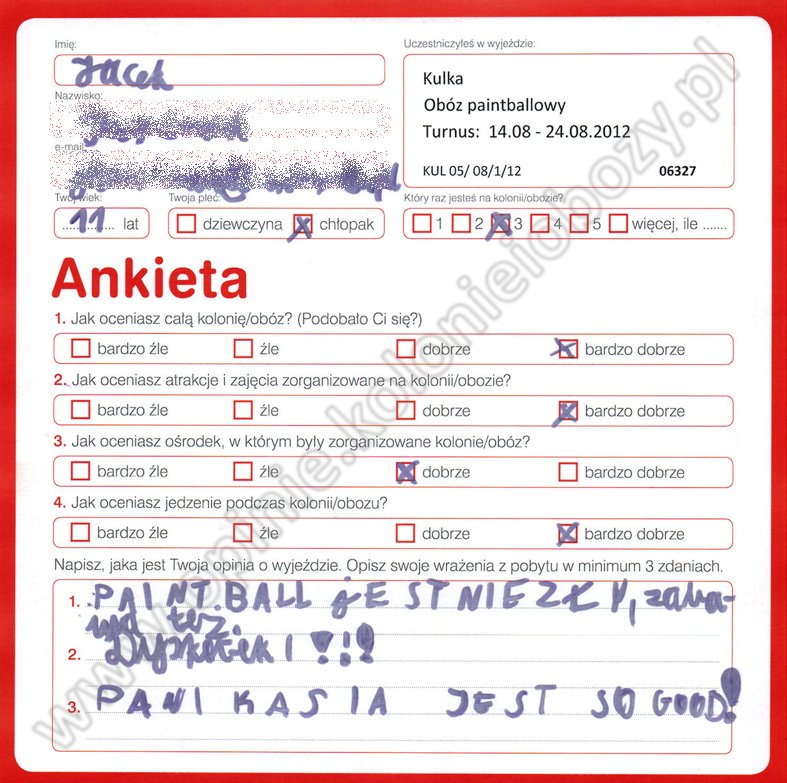 Imię:
Jacek
Uczestniczyłeś w wyjeździe:
Kulka
Obóz paintballowy
Turnus: 14.08 - 24.08.2012
KUL 05/ 08/1/12 06327
Nazwisko:
e-mail:
Twój wiek:
11 lat
Twoja płeć:
dziewczyna chłopak
Który raz jesteś na kolonii/obozie?
1 2 3 4 5 więcej, ile .......
Ankieta
1. Jak oceniasz całą kolonię/obóz? (Podobało Ci się?)
bardzo źle źle dobrze bardzo dobrze
2. Jak oceniasz atrakcje i zajęcia zorganizowane na kolonii/obozie?
bardzo źle źle dobrze bardzo dobrze
3. Jak oceniasz ośrodek, w którym były zorganizowane kolonie/obóz?
bardzo źle źle dobrze bardzo dobrze
4. Jak oceniasz jedzenie podczas kolonii/obozu?
bardzo źle źle dobrze bardzo dobrze
Napisz, jaka jest Twoja opinia o wyjeździe. Opisz swoje wrażenia z pobytu w minimum 3 zdaniach.
1. PAINTBALL jEST NIEZŁY, zaba-
wa też.
2. Dyskoteki !!!
3. PANI KASIA JEST SO GOOD!
www.opinie.kolonieiobozy.pl